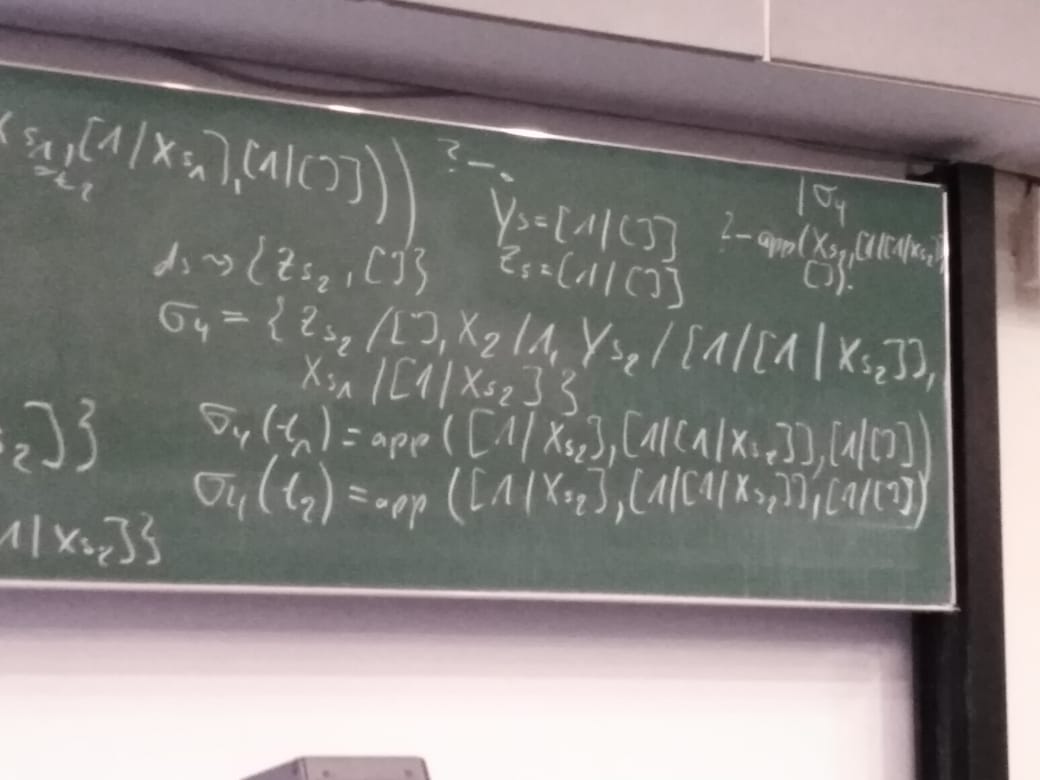 Xs₁,[1/Xs₁],[1|[]]))
=t₂
?-.
Ys=[1|[]]
Zs=[1|[]]
|σ₄
?-app(Xs₂,[1|[1|Xs₂]],
[]).
ds ~> {Zs₂,[]}
σ₄ = {Zs₂/[], X₂/1, Ys₂/[1/[1|Xs₂]],
Xs₁/[1|Xs₂]}
s₂]}
σ₄(t₁) = app([1|Xs₂],[1|[1|Xs₂]],[1|[]])
σ₄(t₂) = app([1|Xs₂],[1|[1|Xs₂]],[1|[]])
1|Xs₂]}